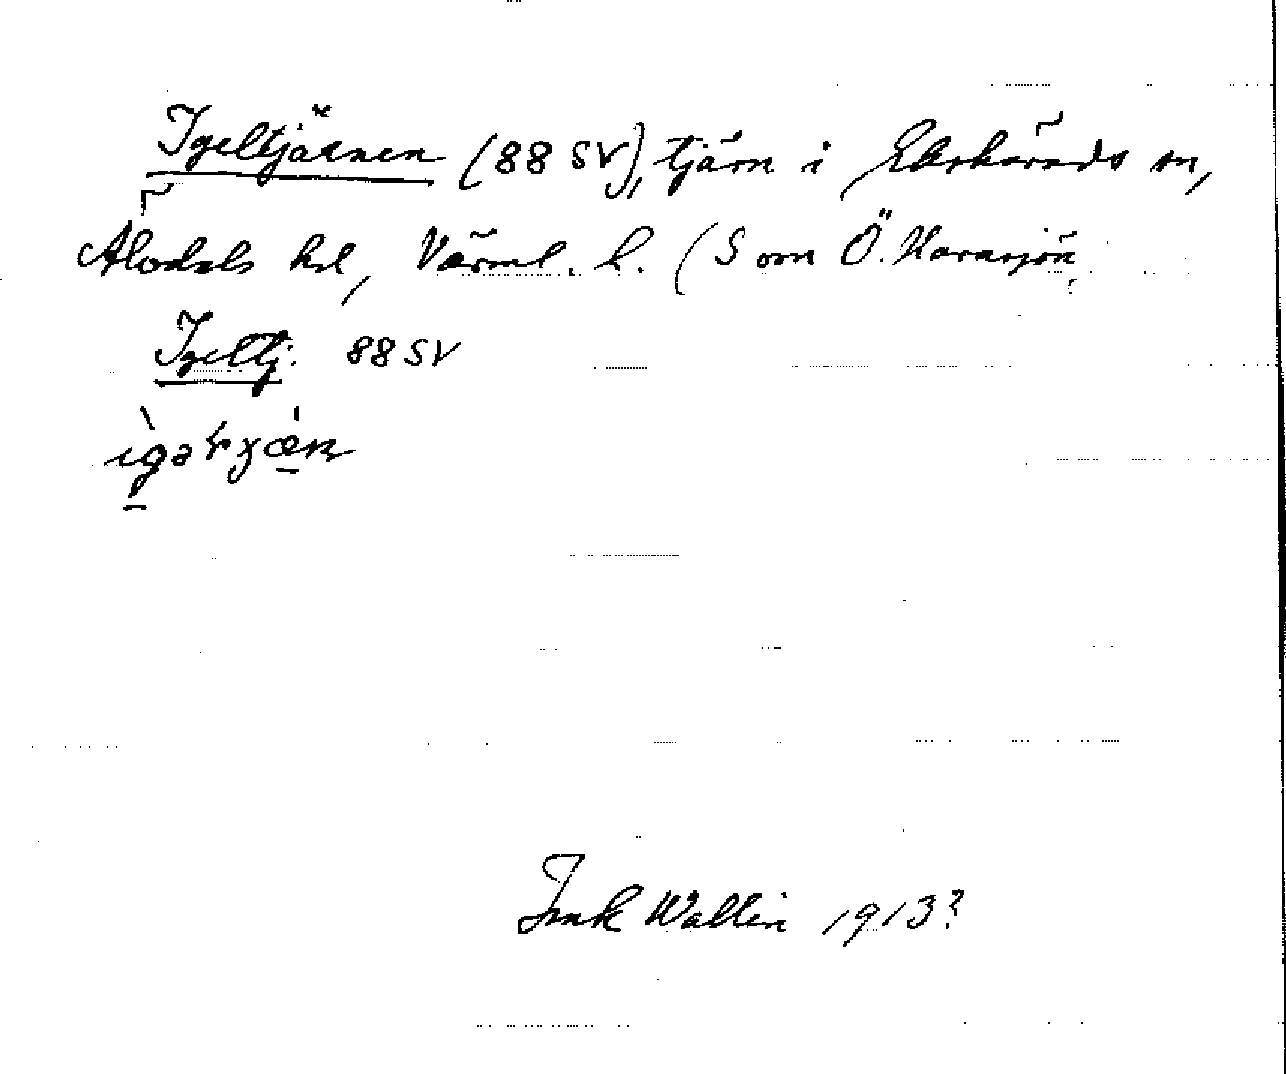 Igeltjärnen (88 SV), tjärn i Ekshärads sn,
Älvdals hd, Värml. l. (S om Ö. Havssjön
Igeltj. 88 SV
Wallin 1913?